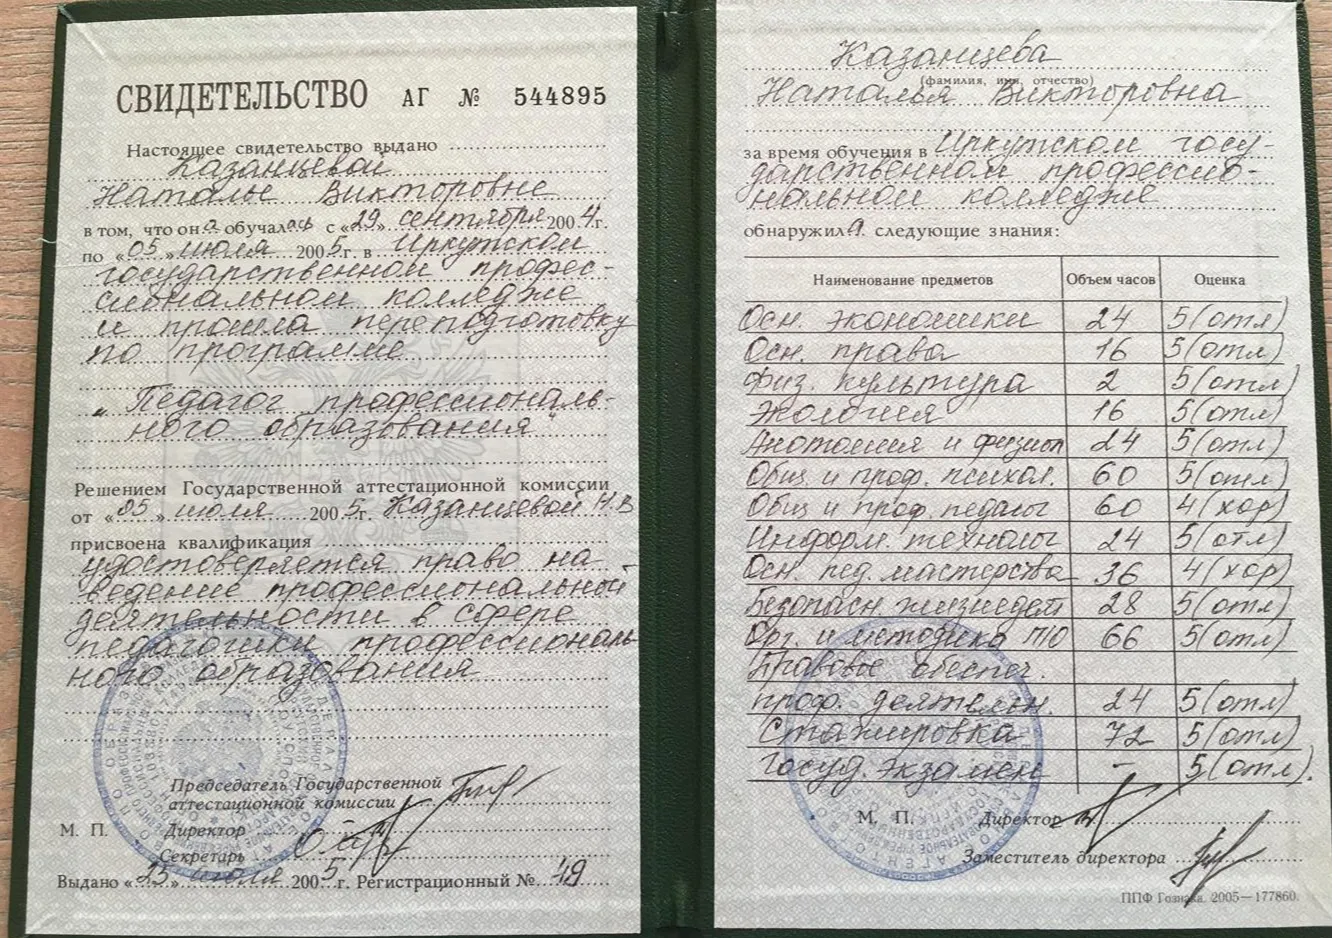 СВИДЕТЕЛЬСТВО АГ № 544895
Настоящее свидетельство выдано
Казанцевой
Наталье Викторовне
в том, что она обучалась с «29» сентября 2004г.
по «05» июля 2005г. в Иркутском
государственном профес-
сиональном колледже
и прошла переподготовку
по программе
„Педагог профессиональ-
ного образования"
Решением Государственной аттестационной комиссии
от «05» июля 2005г. Казанцевой Н.В
присвоена квалификация
удостоверяется право на
ведение профессиональной
деятельности в сфере
педагогики профессиональ
ного образования
Председатель Государственной
аттестационной комиссии
М. П. Директор
Секретарь
Выдано «25» июля 2005г. Регистрационный № 49
Казанцева
(фамилия, имя, отчество)
Наталья Викторовна
за время обучения в Иркутском госу-
дарственном профессио-
нальном колледже
обнаружила следующие знания:
Наименование предметов Объем часов Оценка
Осн. экономики 24 5(отл)
Осн. права 16 5(отл)
Физ. культура 2 5(отл)
Экология 16 5(отл)
Анотомия и физиол 24 5(отл)
Общ. и проф. психол. 60 5(отл)
Общ и проф. педагог 60 4(хор)
Информ. технолог 24 5(отл)
Осн. пед. мастерства 36 4(хор)
Безопасн. жизнедеят 28 5(отл)
Орг. и методика П/О 66 5(отл)
Правовое обеспеч.
проф. деятельн. 24 5(отл)
Стажировка 72 5(отл)
Госуд. экзамен - 5(отл).
М. П. Директор
Заместитель директора
ППФ Гознака. 2005—177860.